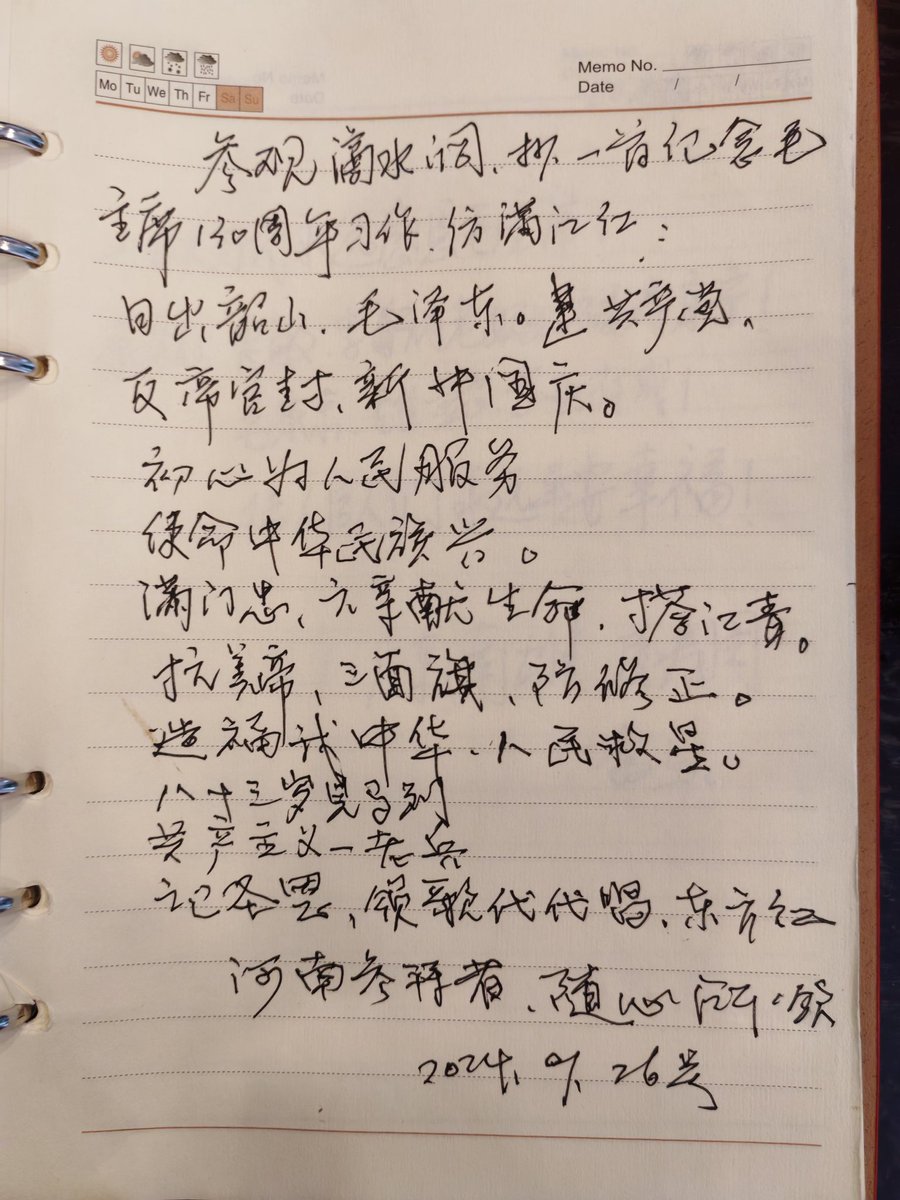 Memo No.
Mo Tu We Th Fr Sa Su
Date / /
参观滴水洞,抄一首纪念毛
主席130周年习作,仿满江红:
日出韶山,毛泽东。建共产党、
反帝官封、新中国庆。
初心为人民服务
使命中华民族兴。
满门忠,六亲献生命,搭江青。
抗美帝,三面旗,防修正。
造福我中华,人民救星。
八十三岁见马列
共产主义一老兵
记圣恩,颂歌代代唱,东方红
河南参拜者、随心所欲
2024.9.26号